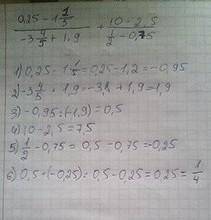 0,25 - 1 1/5 / -3 4/5 + 1,9 + 10 - 2,5 / 1/2 - 0,75
1) 0,25 - 1 1/5 = 0,25 - 1,2 = -0,95
2) -3 4/5 + 1,9 = -3,8 + 1,9 = 1,9
3) -0,95 : (-1,9) = 0,5
4) 10 - 2,5 = 7,5
5) 1/2 - 0,75 = 0,5 - 0,75 = 0,25
6) 0,5 + (-0,25) = 0,5 - 0,25 = 0,25 = 1/4